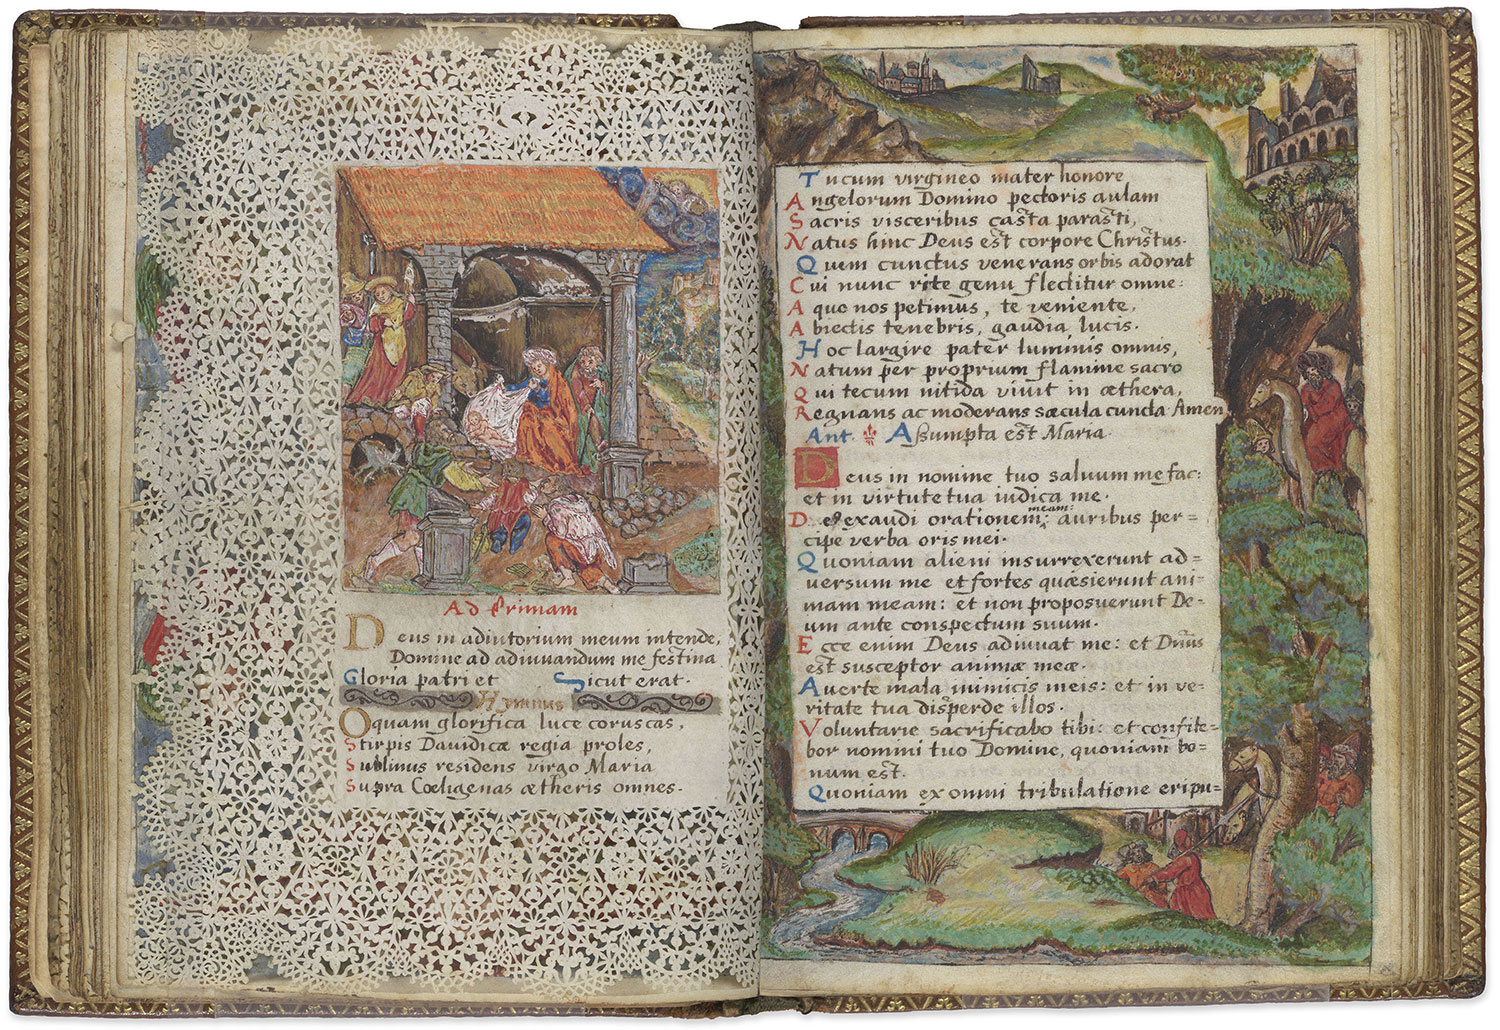 Ad Primam
Deus in adiutorium meum intende,
Domine ad adiuuandum me festina
Gloria patri et Sicut erat.
Hymnus
O quam glorifica luce coruscas,
Stirpis Dauidicæ regia proles,
Sublimis residens virgo Maria
Supra Cœligenas ætheris omnes.
Tu cum virgineo mater honore
Angelorum Domino pectoris aulam
Sacris visceribus casta parasti,
Natus hinc Deus est corpore Christus.
Quem cunctus venerans orbis adorat
Cui nunc rite genu flectitur omne:
A quo nos petimus, te veniente,
Abiectis tenebris, gaudia lucis.
Hoc largire pater luminis omnis,
Natum per proprium flamine sacro
Qui tecum nitida viuit in æthera,
Regnans ac moderans sæcula cuncta Amen
Ant. Assumpta est Maria.
Deus in nomine tuo saluum me fac:
et in virtute tua iudica me.
Deus exaudi orationem meam: auribus per=
cipe verba oris mei.
Quoniam alieni insurrexerunt ad=
versum me et fortes quæsierunt ani=
mam meam: et non proposuerunt De=
um ante conspectum suum.
Ecce enim Deus adiuuat me: et Dñus
est susceptor animæ meæ.
Auerte mala inimicis meis: et in ve=
ritate tua disperde illos.
Voluntarie sacrificabo tibi: et confite=
bor nomini tuo Domine, quoniam bo=
num est.
Quoniam ex omni tribulatione eripu=